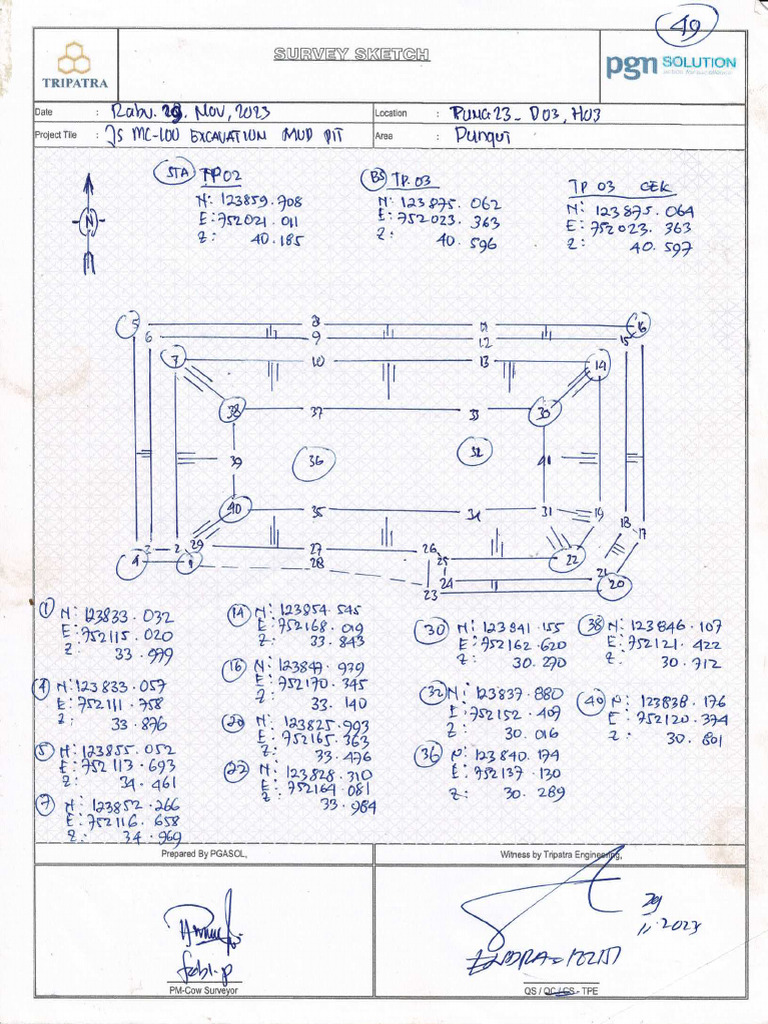 49
TRIPATRA
SURVEY SKETCH
pgn SOLUTION
Date : Rabu. 29. Nov, 2023
Location : PUNG 23_ D03, H03
Project Tile : JS MC-100 EXCAVATION MUD PIT
Area : Pungut
STA TP 02
N: 123859.708
E: 752021.011
Z: 40.185
BS TP. 03
N: 123875.062
E: 752023.363
Z: 40.596
TP 03 CEK
N: 123875.064
E: 752023.363
Z: 40.597
N
5 8 11 16
6 9 12 15
7 10 13 14
38 37 33 30
39 36 32 41
40 35 34 31 19
18 17
3 2 29 27 26
4 1 28 25 22
24 21 20
23
1 N: 123833.032
E: 752115.020
Z: 33.979
4 N: 123833.057
E: 752111.758
Z: 33.876
5 N: 123855.052
E: 752113.693
Z: 34.461
7 N: 123852.266
E: 752116.658
Z: 34.969
14 N: 123854.545
E: 752168.019
Z: 33.843
16 N: 123847.939
E: 752170.345
Z: 33.140
20 N: 123825.993
E: 752165.363
Z: 33.476
22 N: 123828.310
E: 752164.081
Z: 33.984
30 N: 123841.155
E: 752162.620
Z: 30.270
32 N: 123837.880
E: 752152.407
Z: 30.016
36 N: 123840.174
E: 752137.130
Z: 30.289
38 N: 123846.107
E: 752121.422
Z: 30.712
40 N: 123838.176
E: 752120.374
Z: 30.801
Prepared By PGASOL,
Witness by Tripatra Engineering,
29
11.2023
PM-Cow Surveyor
QS / QC / GS - TPE